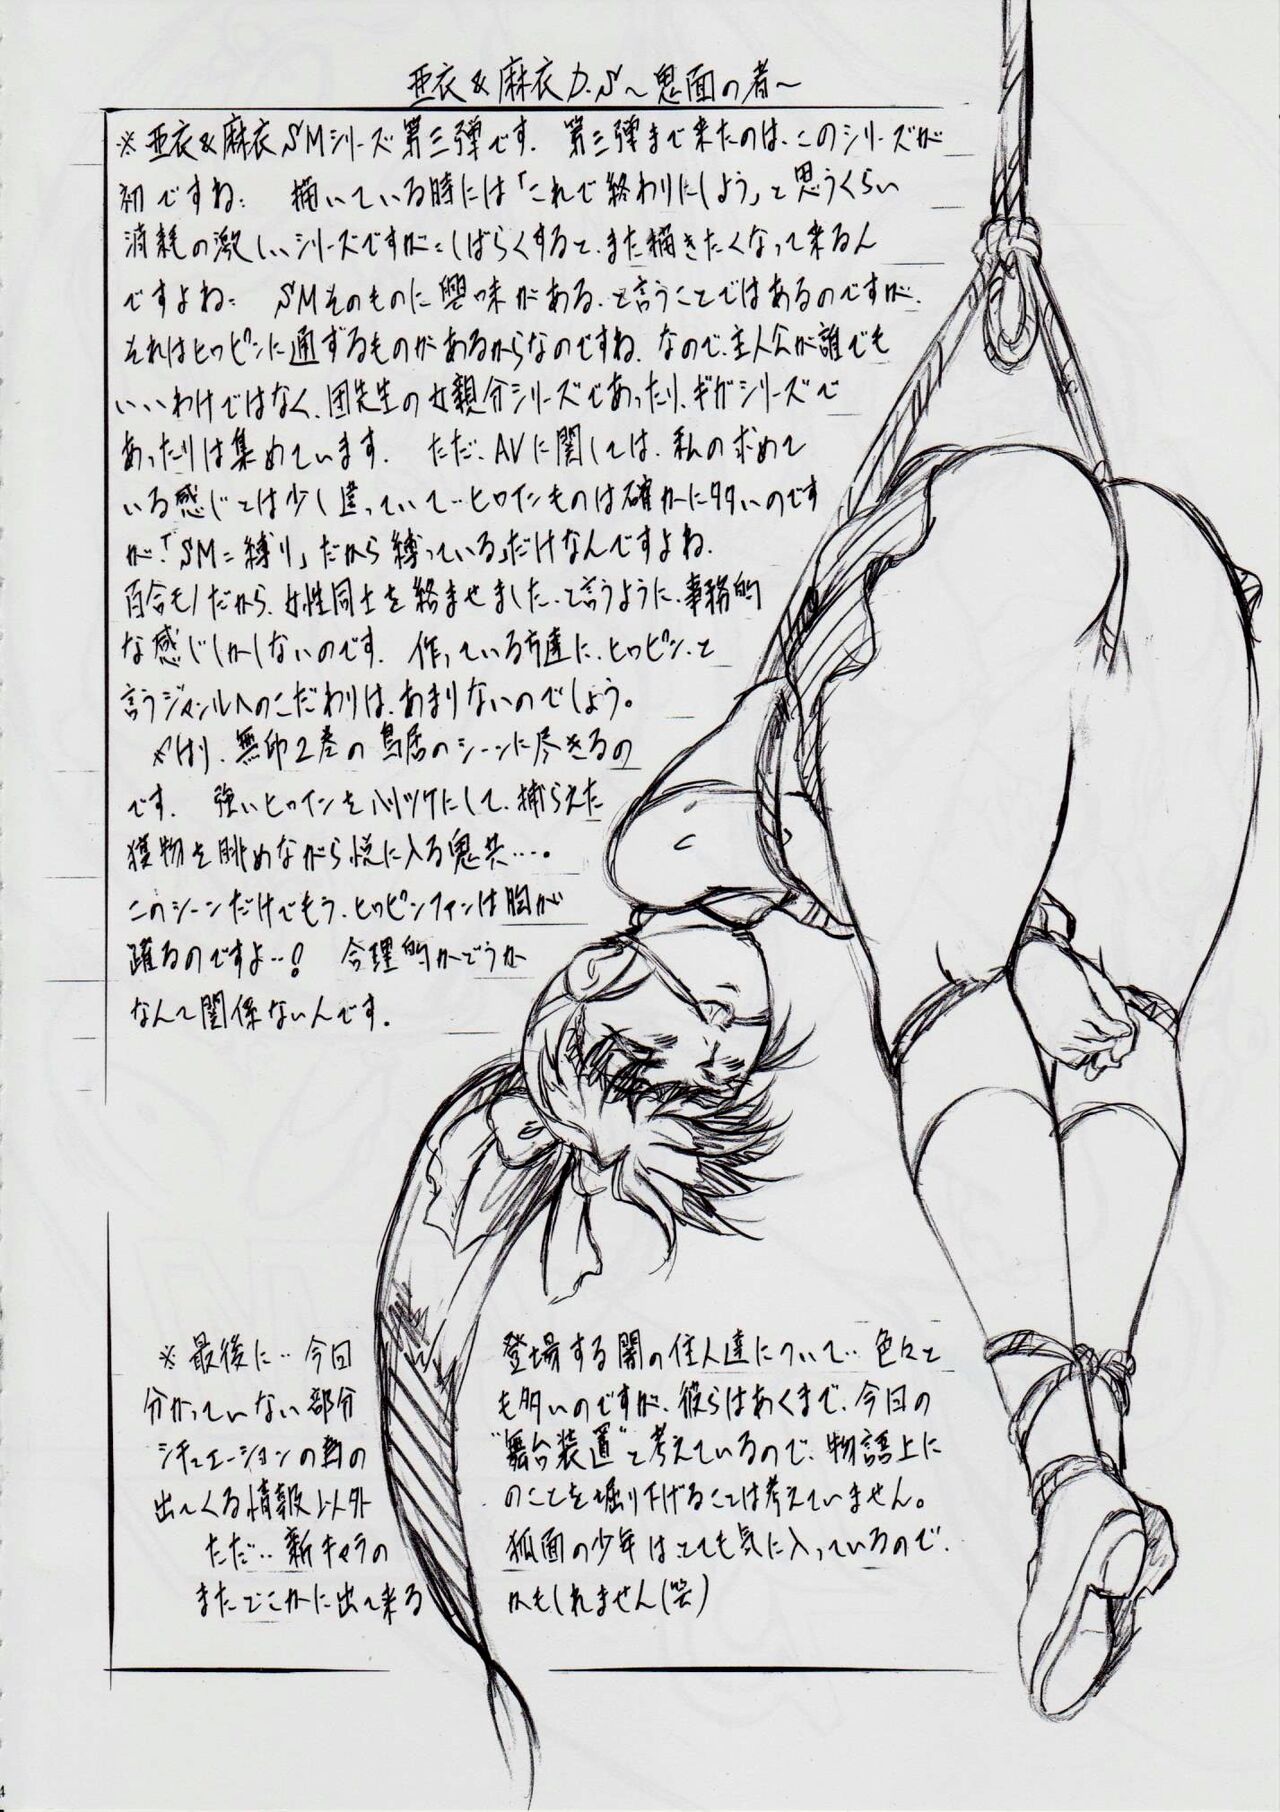 亜衣&麻衣D.S～鬼面の者～
※亜衣&麻衣SMシリーズ第三弾です。第三弾まで来たのは、このシリーズが
初ですね… 描いている時には「これで終わりにしよう」と思うくらい
消耗の激しいシリーズですが…しばらくすると、また描きたくなって来るん
ですよね… SMそのものに興味がある、と言うことではあるのですが、
それはヒロピンに通ずるものがあるからなのですね。なので、主人公が誰でも
いいわけではなく、団先生の女親分シリーズであったり、ギガシリーズで
あったりは集めています。ただ、AVに関しては、私の求めて
いる感じとは少し違っていて…ヒロインものは確かに多いのです
が「SM=縛り」だから縛っている」だけなんですよね。
百合モノだから、女性同士を絡ませました、と言うように、事務的
な感じしかしないのです。作っている方達に、ヒロピン、と
言うジャンルへのこだわりは、あまりないのでしょう。
やはり、無印2巻の鳥居のシーンに尽きるの
です。強いヒロインをハリツケにして、捕らえた
獲物を眺めながら悦に入る鬼共…。
このシーンだけでもう、ヒロピンファンは胸が
躍るのですよ…! 合理的かどうか
なんて関係ないんです。
※最後に…今回 登場する闇の住人達について…色々と
分かっていない部分 も多いのですが、彼らはあくまで、今回の
シチュエーションの為の "舞台装置"と考えているので、物語上に
出てくる情報以外 のことを掘り下げることは考えていません。
ただ…新キャラの 狐面の少年はとても気に入っているので、
またどこかに出て来る かもしれません(笑)